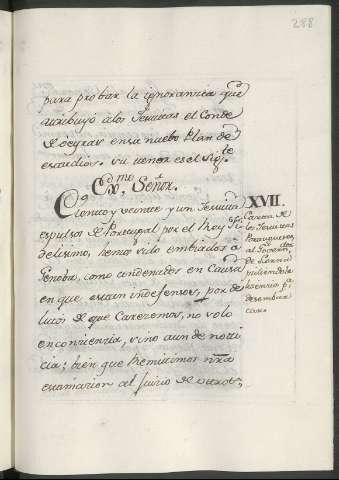 288
para probar la ignorancia que
atribuyó a los Jesuitas el Conde
de Oeyras en su nuebo Plan de
estudios. Su tenor es el sigte
Exmo. Señor.
Ciento y veinte y un Jesuitas
expulsos de Portugal por el Rey Fi
delisimo, hemos sido embiados à
Genoba, como condenados en Causa
en que estan indefensos, por de
litos de que Carecemos, no solo
en conciencia, sino aun de noti
cia; bien que remitimos nra
examinacion al juicio de otros,
XVII.
Carta de
los Jesuitas
Portugueses
al Govern.dor
de
pidiendole
licencia pa
desembar
car.